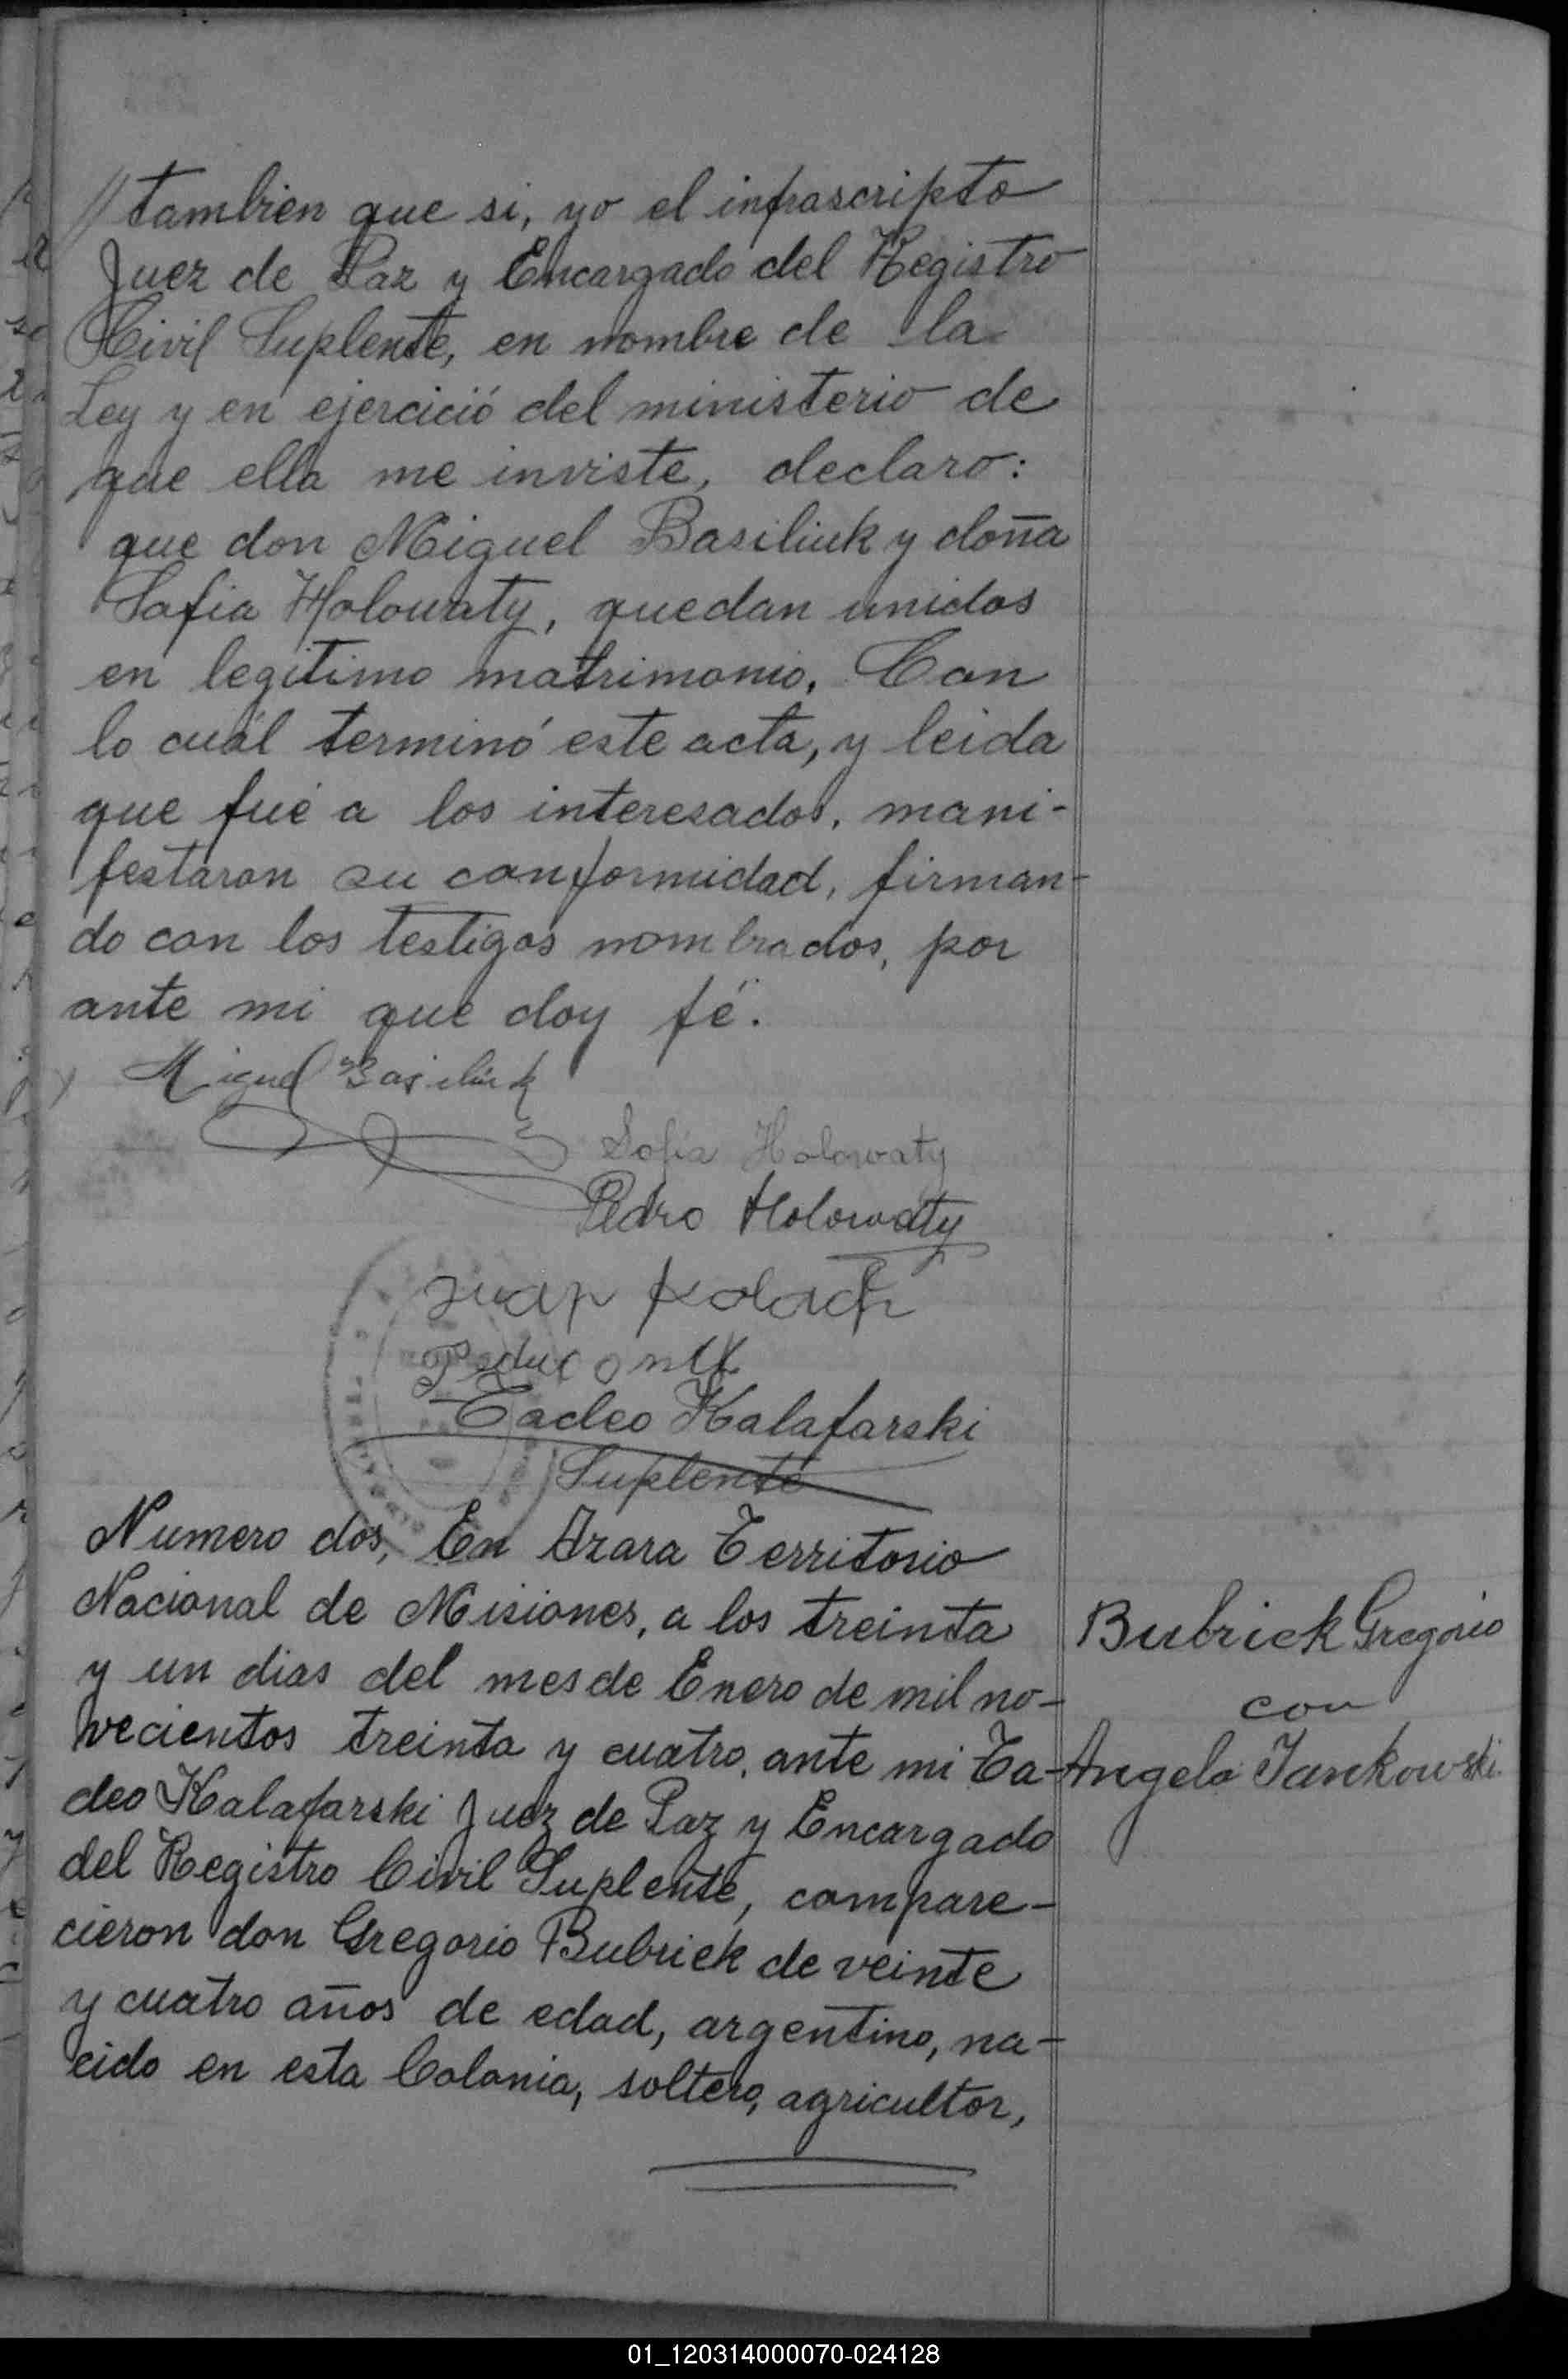 // tambien que si, yo el infrascripto
Juez de Paz y Encargado del Registro
Civil Suplente, en nombre de la
Ley y en ejercició del ministerio de
que ella me inviste, declaro:
que don Miguel Basiliuk y doña
Sofia Holowaty, quedan unidos
en legitimo matrimonio. Con
lo cuál terminó este acta, y leida
que fué a los interesados, mani-
festaron su conformidad, firman-
do con los testigos nombrados, por
ante mi que doy fé.
Miguel Basiliuk
Sofia Holowaty
Pedro Holowaty
Juan
Tadeo Kalafarski
Suplente
Numero dos, En Azara Territorio
Nacional de Misiones, a los treinta
y un dias del mes de Enero de mil no-
vecientos treinta y cuatro, ante mi Ta-
deo Kalafarski Juez de Paz y Encargado
del Registro Civil Suplente, compare-
cieron don Gregorio Bubriek de veinte
y cuatro años de edad, argentino, na-
cido en esta Colonia, soltero, agricultor,
Bubriek Gregorio
con
Angela Jankowski
01_120314000070-024128